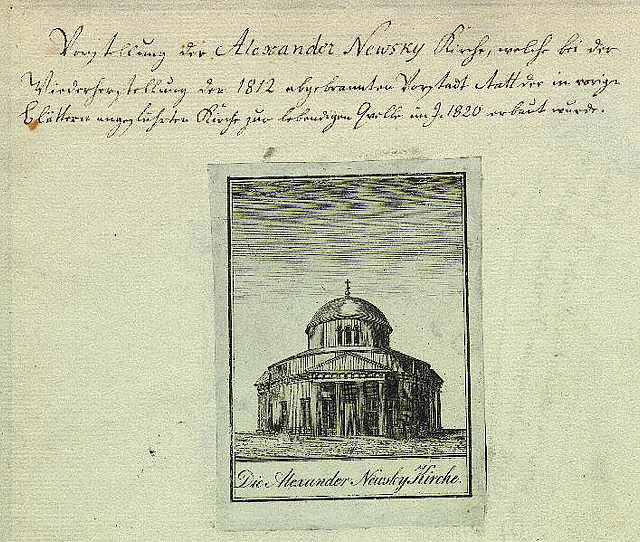 Vorstellung der Alexander Newsky Kirche, welche bei der
Wiederherstellung der 1812 abgebrannten Vorstadt statt der in vorige
Blättern angeführten Kirche zur lebendigen Quelle im J. 1820 erbaut wurde.
Die Alexander Newsky Kirche.